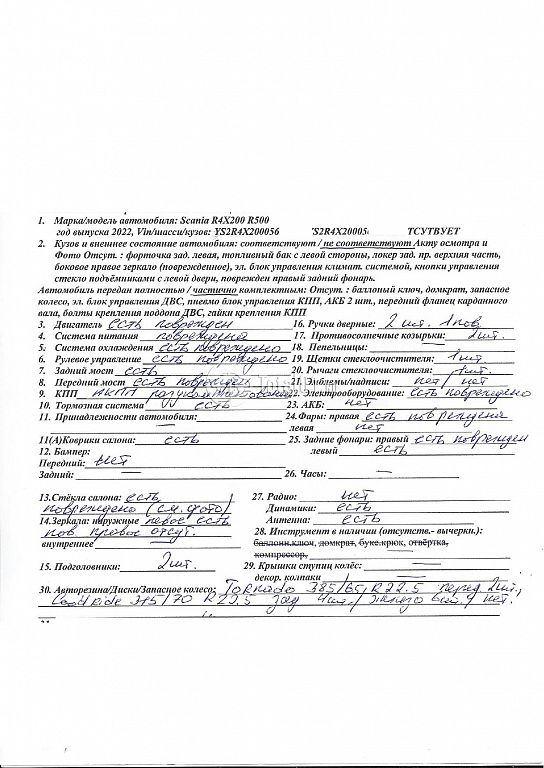 1. Марка/модель автомобиля: Scania R4X200 R500
год выпуска 2022, Vin/шасси/кузов: YS2R4X200056 S2R4X2005 ТСУТВУЕТ
2. Кузов и внешнее состояние автомобиля: соответствуют / не соответствуют Акту осмотра и
Фото Отсут. : форточка зад. левая, топливный бак с левой стороны, локер зад. пр. верхняя часть,
боковое правое зеркало (поврежденное), эл. блок управления климат. системой, кнопки управления
стекло подъёмниками с левой двери, поврежден правый задний фонарь.
Автомобиль передан полностью / частично комплектным: Отсут. : баллоный ключ, домкрат, запасное
колесо, эл. блок управления ДВС, пневмо блок управления КПП, АКБ 2 шт., передний фланец карданного
вала, болты крепления поддона ДВС, гайки крепления КПП
3. Двигатель есть поврежден 16. Ручки дверные: 2 шт. 1 пов
4. Система питания повреждена 17. Противосолнечные козырьки: 2 шт.
5. Система охлаждения есть повреждено 18. Пепельницы: —
6. Рулевое управление есть повреждено 19. Щетки стеклоочистителя: 1 шт.
7. Задний мост есть 20. Рычаги стеклоочистителя: 1 шт.
8. Передний мост есть поврежден 21. Эмблемы/надписи: нет / нет
9. КПП АКПП 22. Электрооборудование: есть повреждено
10. Тормозная система есть 23. АКБ: нет
11. Принадлежности автомобиля: — 24. Фары: правая есть повреждена
левая нет
11(А)Коврики салона: есть 25. Задние фонари: правый есть поврежден
12. Бампер: левый есть
Передний: нет
Задний: — 26. Часы: —
13.Стёкла салона: есть 27. Радио: нет
повреждено (см. фото) Динамики: есть
14.Зеркала: наружные левое есть Антенна: есть
пов. правое отсут. 28. Инструмент в наличии (отсутств.- вычерки.):
внутреннее — баллонн.ключ, домкрат, букс.крюк, отвёртка,
компрессор,
15. Подголовники: 2 шт. 29. Крышки ступиц колёс: —
декор. колпаки —
30. Авторезина/Диски/Запасное колесо: Tornado 385/65, R 22.5 перед 2 шт.,
315/70 R 22.5 зад 4 шт./ нет.